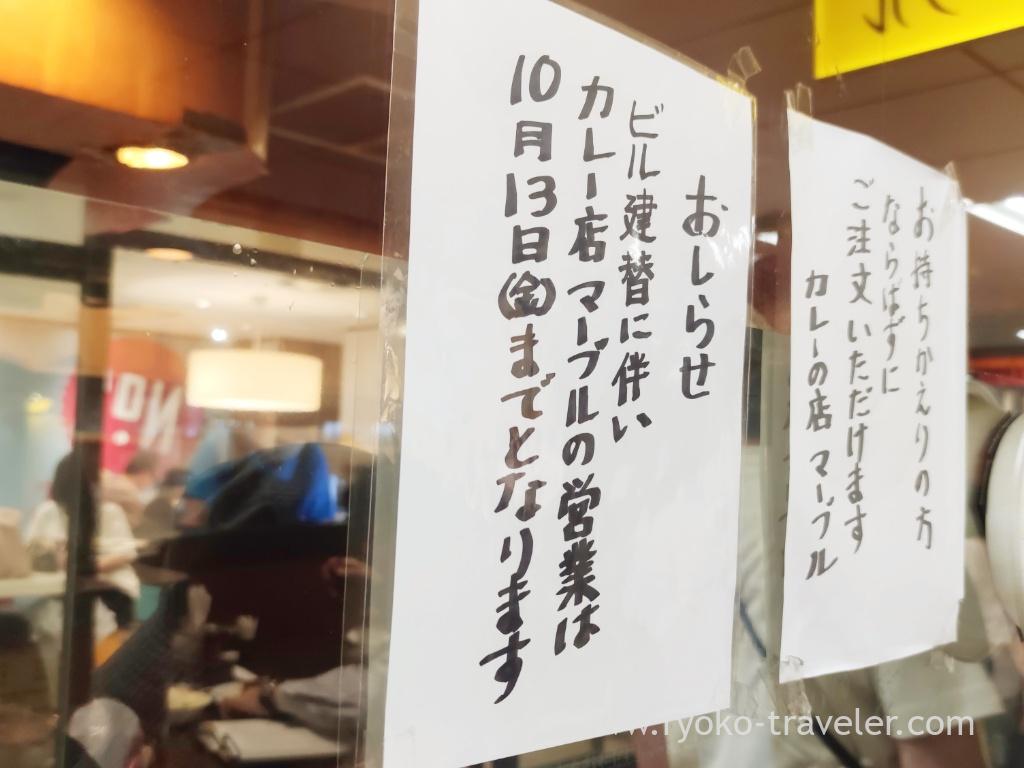 お持ちかえりの方
ならばずに
ご注文いただけます
カレーの店 マーブル
おしらせ
ビル建替に伴い
カレー店 マーブルの営業は
10月13日(金)までとなります
www.ryoko-traveler.com